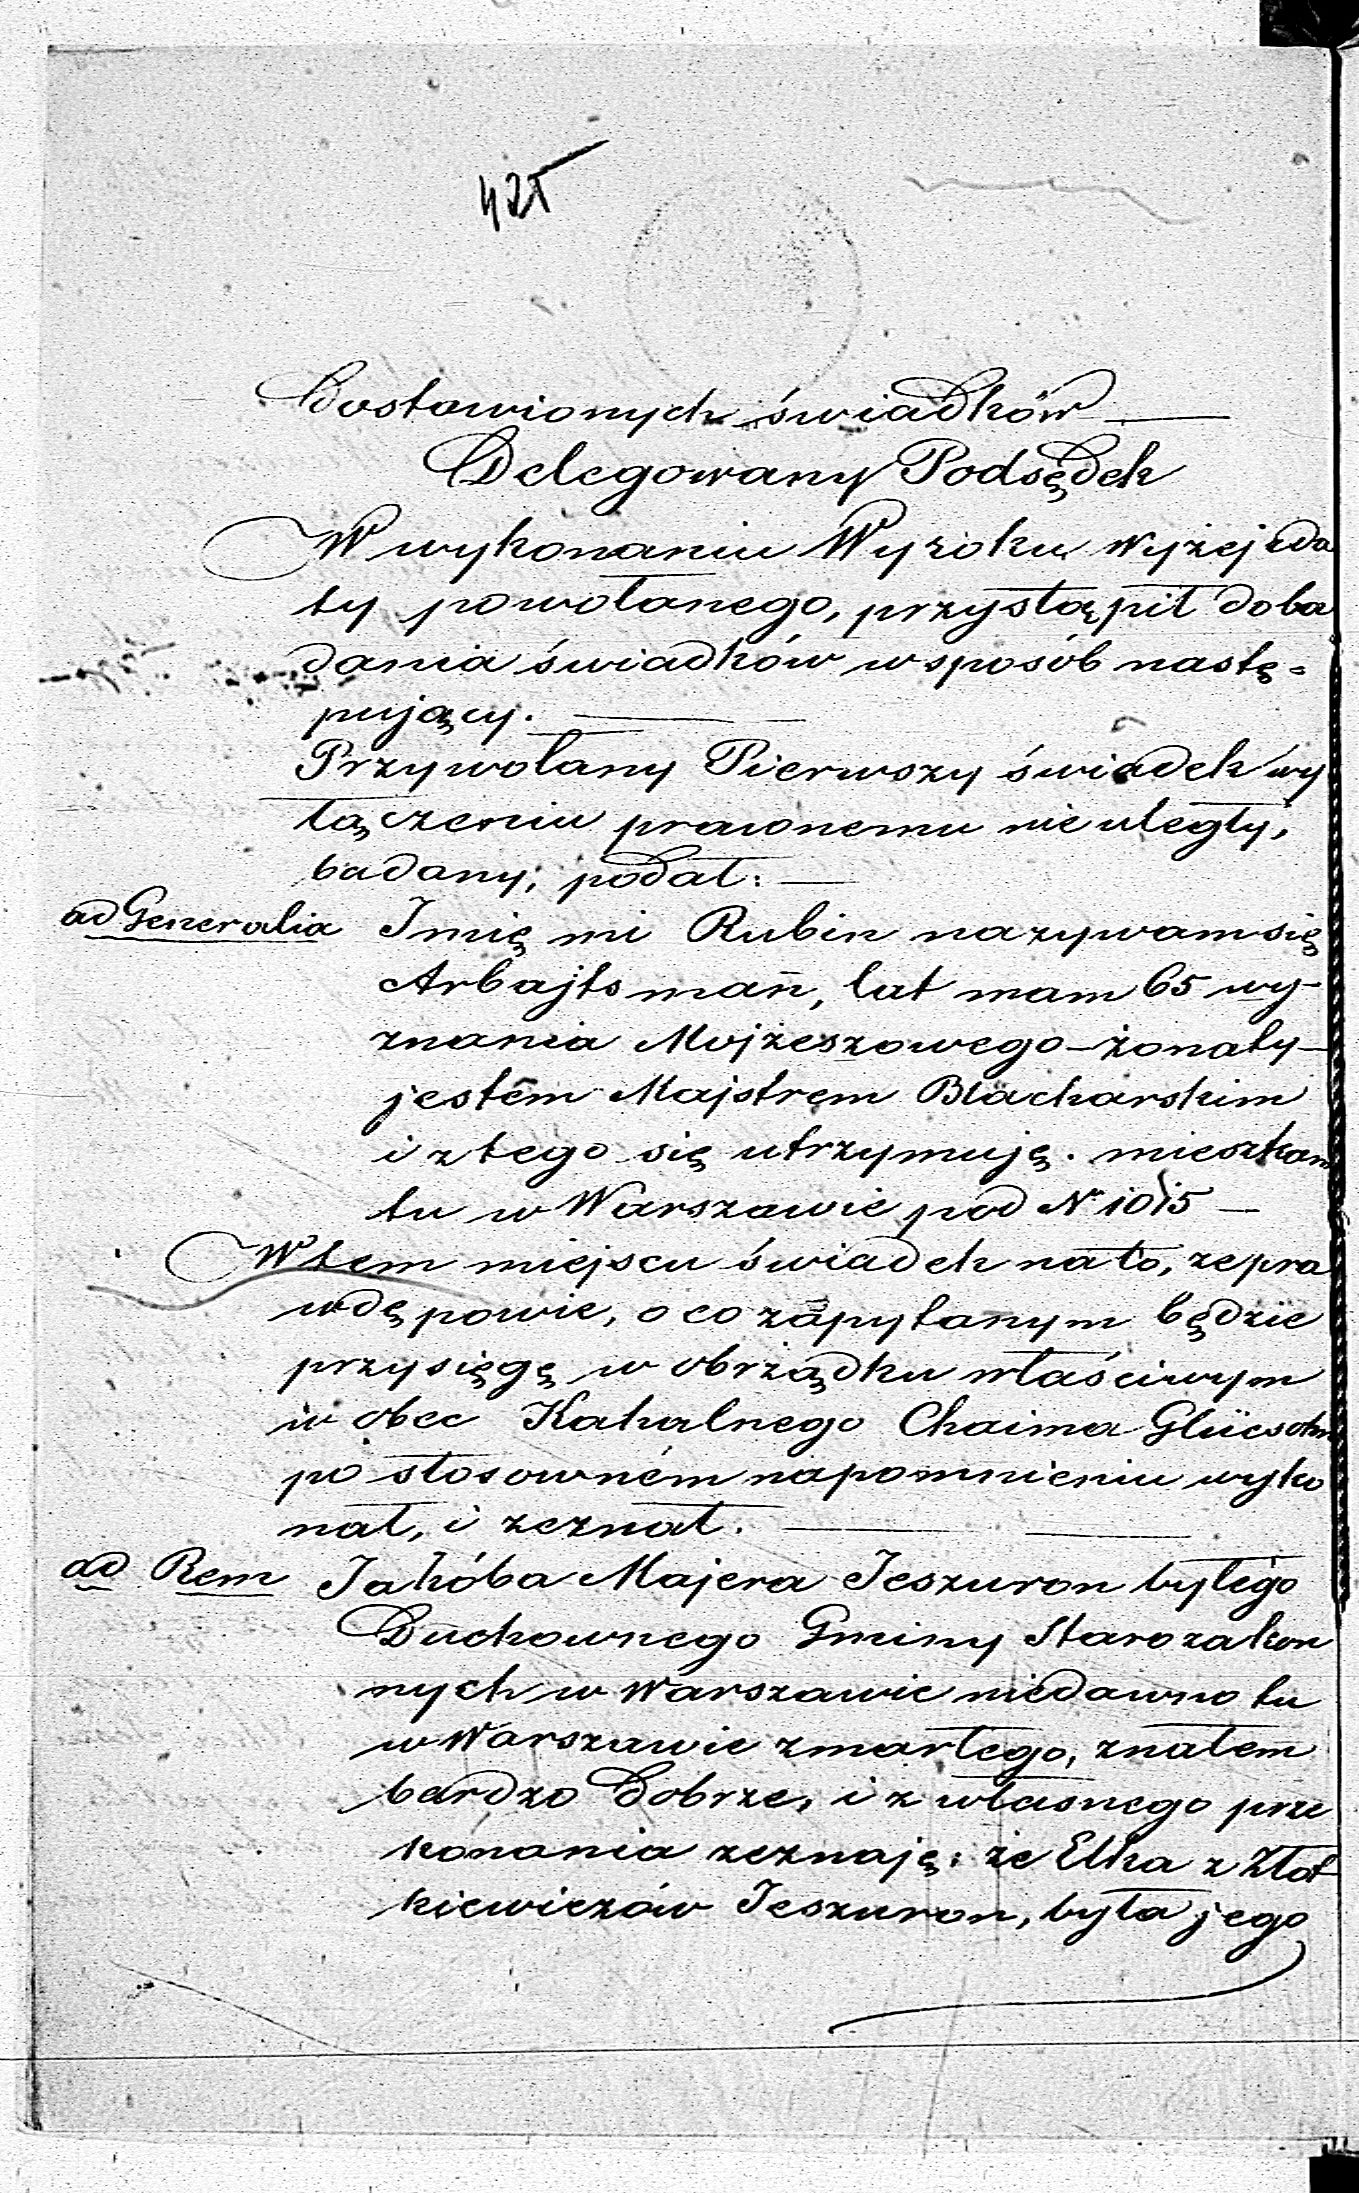 425
Dostawionych świadków —
Delegowany Podsędek
W wykonaniu Wyroku wyżej z da
ty powołanego, przystąpił do ba
dania świadków w sposób nastę=
pujący. —
Przywołany Pierwszy świadek wy
łączeniu prawnemu nie uległy,
badany; podał: —
ad Generalia Imię mi Rubin nazywam się
Arbajtsman̄, lat mam 65 wy-
znania Mojżeszowego – żonaty –
jestem Majstrem Blacharskim
i z tego się utrzymuję. mieszkam
tu w Warszawie pod N 1015 —
W tem miejscu świadek na to, że pra
wdę powie, o co zapytanym będzie
przysięgę w obrządku właściwym
w obec Kahalnego Chaima Glücsohn
po stosowném napomnieniu wyko
nał, i zeznał. —
ad Rem Jakóba Majera Jeszuron byłego
Duchownego Gminy Starozakon
nych w Warszawie niedawno tu
w Warszawie zmarłego, znałem
bardzo dobrze, i z własnego prze
konania zeznaję: że Elka z Złot
kiewiczów Jeszuron, była jego